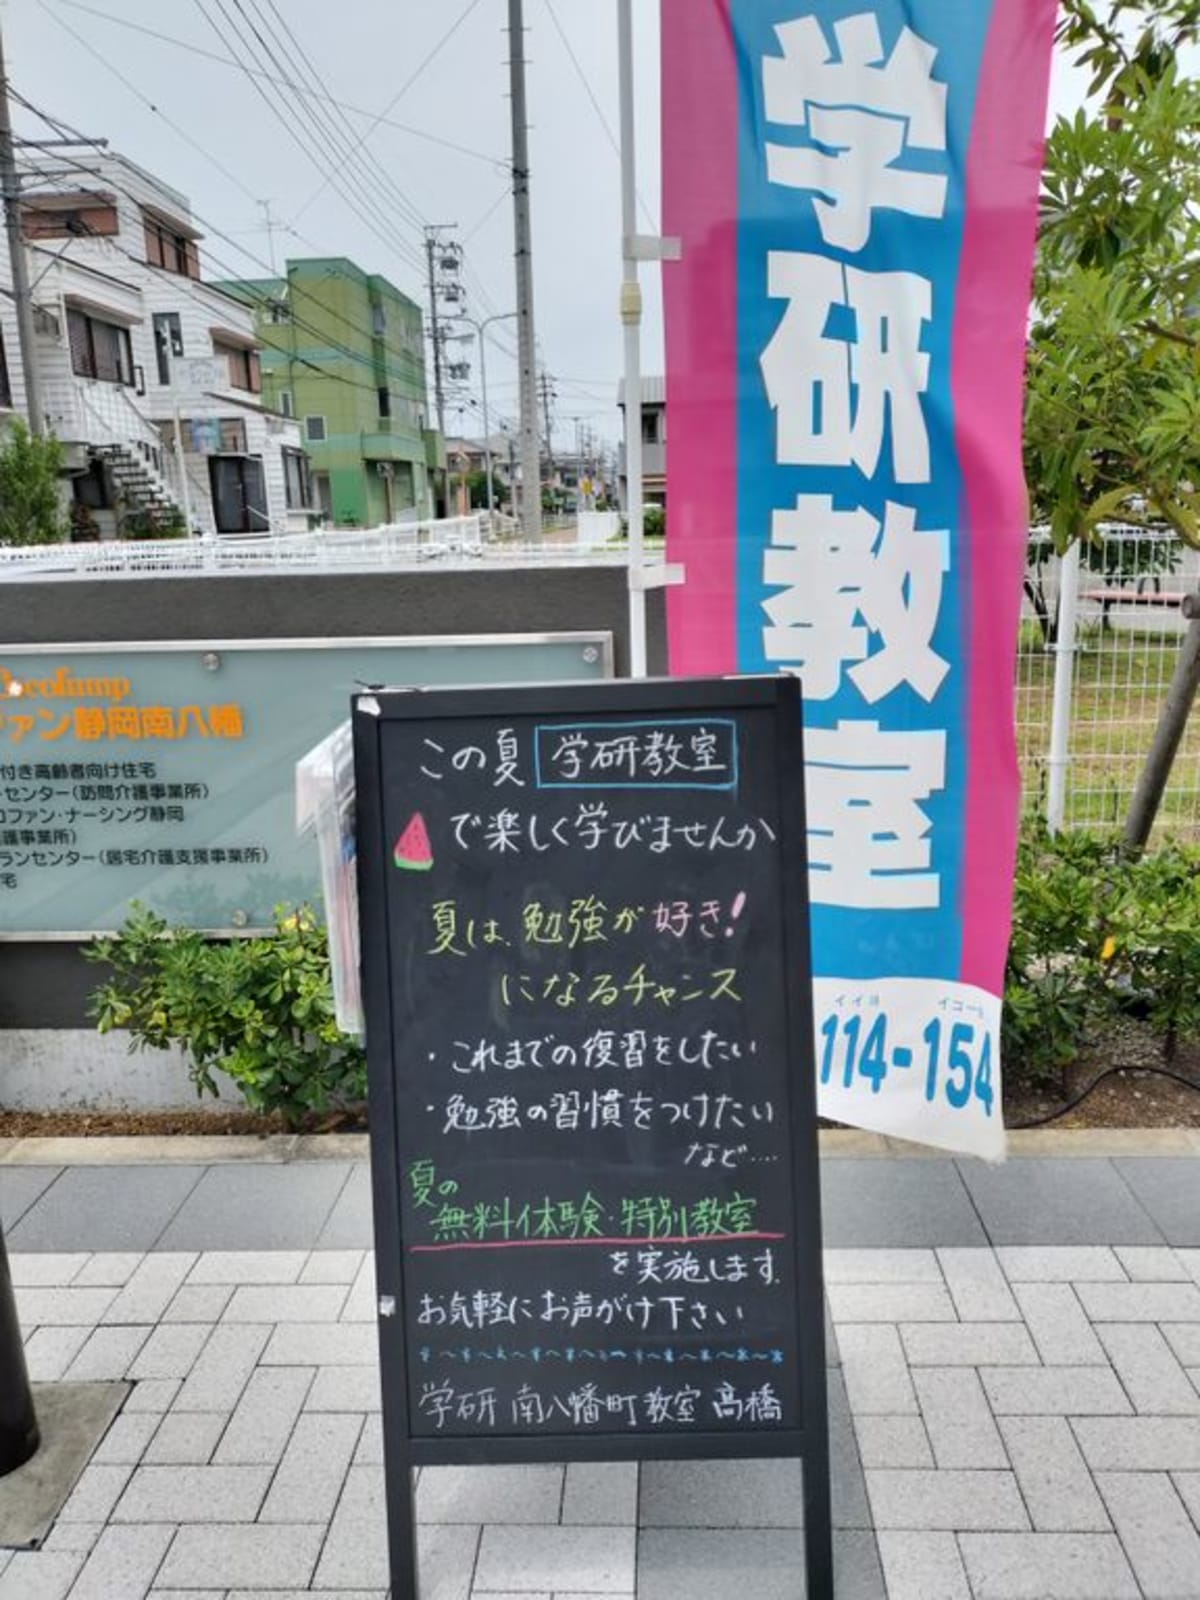 学研教室
イイヨ イコーヨ
114-154
cocofump
ファン静岡南八幡
付き高齢者向け住宅
ーセンター(訪問介護事業所)
コファン・ナーシング静岡
護事業所)
ランセンター(居宅介護支援事業所)
宅
この夏 学研教室
で楽しく学びませんか
夏は、勉強が好き!
になるチャンス
・これまでの復習をしたい
・勉強の習慣をつけたい
など‥‥
夏の
無料体験・特別教室
を実施します。
お気軽にお声がけ下さい
学研 南八幡町教室 高橋